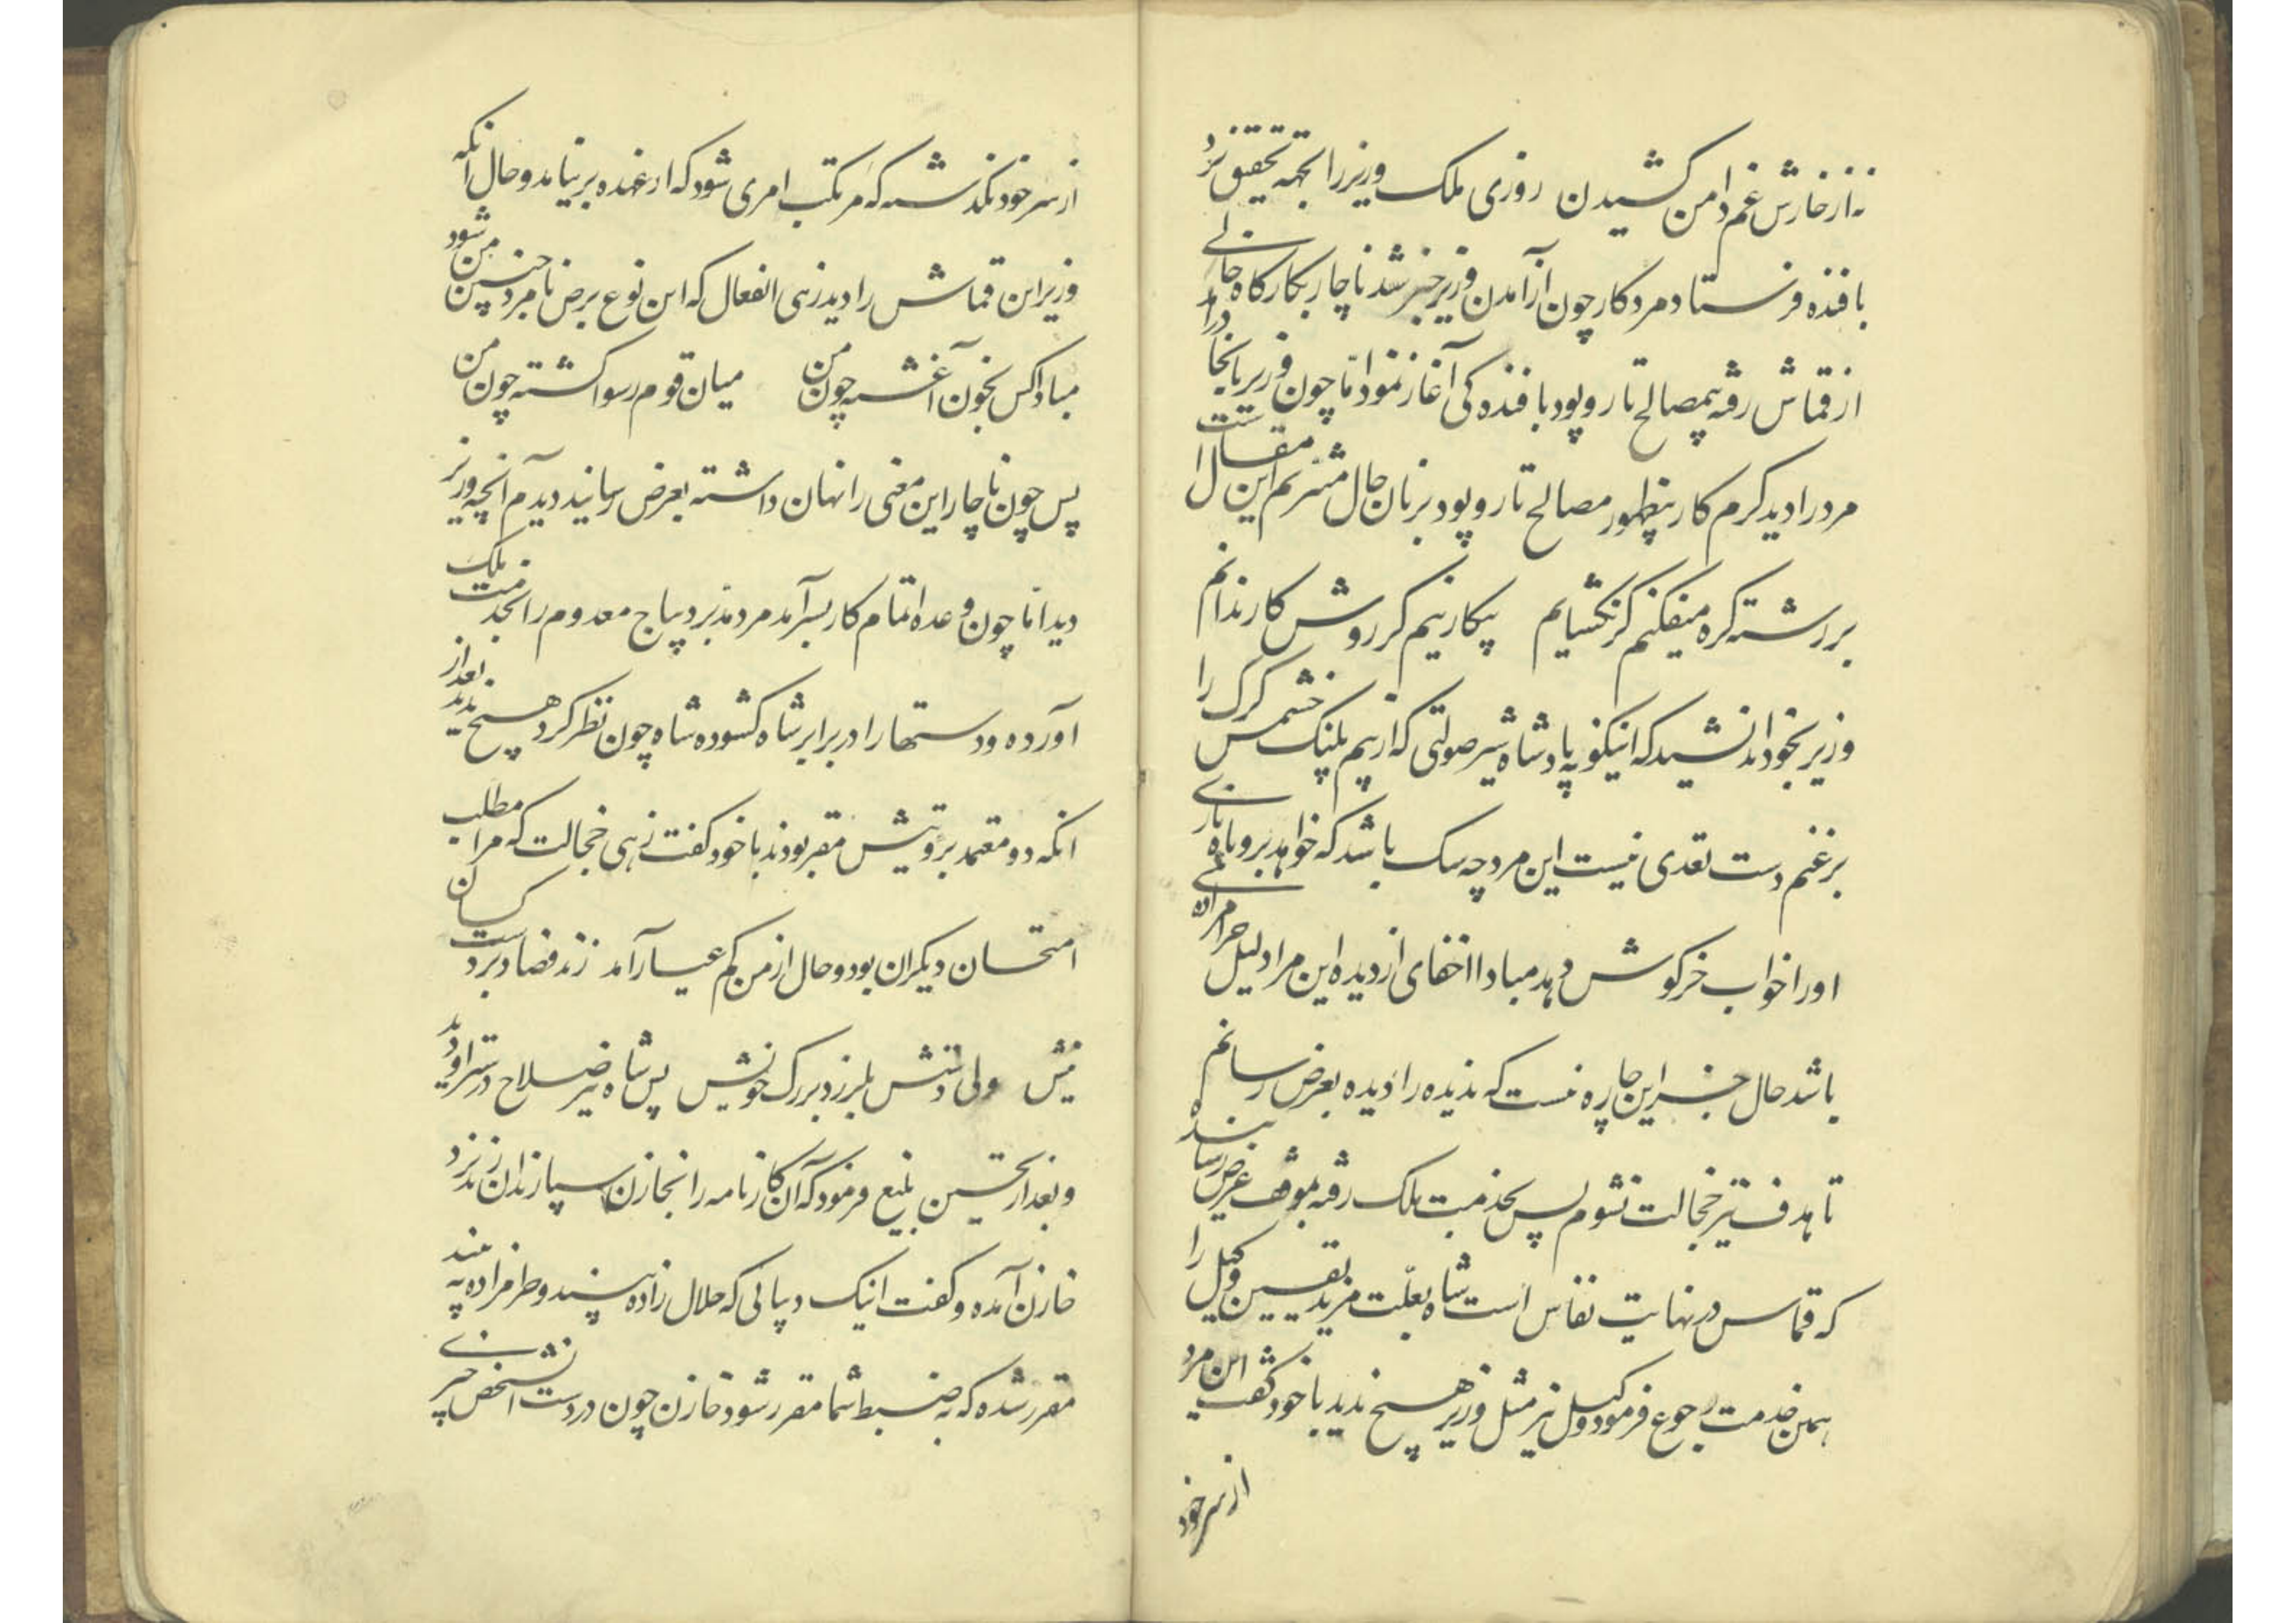 نه از خارش غم دامن کشیدن روزی ملک وزیر را بجهه تحقیق نزد
بافنده فرستاد مرد کار چون از آمدن وزیر خبر شد ناچار بکارگاه خالی
از قماش رفته بمصالح تار و پود بافندگی آغاز نمود اما چون وزیر بانجا درآ
مرد را دید گرم کار بیظهور مصالح تار و پود بزبان حال مترنم این مقالست
بر رشته گره میفکنم گر نگشایم بیکار نیم گر روش کار ندانم
وزیر بخود اندیشید که اینگونه پادشاه شیر صولتی که از بیم پلنگ خشمش گرگ را
بر غنم دست تعدی نیست این مرد چه سگ باشد که خواهد بروباه بازی
او را خواب خرگوش دهد مبادا اخفای از دیده این مرا دلیل حرامزاده
باشد حال جز این چاره نیست که ندیده را دیده بعرض رسانم
تا هدف تیر خجالت نشوم پس بخدمت ملک رفته بموقف عرض رسا
که قماش در نهایت نفاس است شاه بعلت مزید یقین وکیل را
بهمین خدمت رجوع فرمود وکیل نیز مثل وزیر هیچ ندید با خود گفت این مرد
از سر خود
از سر خود نگذشته که مرتکب امری شود که از عهده بر نیامد و حال آنکه
وزیر این قماش را دید زهی انفعال که این نوع برص نامرد جبین من شود
مباد کس بخون آغشته چون من میان قوم رسوا گشته چون من
پس چون ناچار این معنی را نهان داشته بعرض رسانید دیدم آنچه وزیر
دید اما چون وعده اتمام کار بسر آمد مرد مدبر دیباج معدوم را بخدمت ملک
آورده و دستها را در برابر شاه گشوده شاه چون نظر کرد هیچ ندید بعد از
آنکه دو معتمد برویتش مقر بودند با خود گفت زهی خجالت که مرا مطلب
امتحان دیگران بود و حال از من کم عیار آمد زند فصاد بر دست کسان
نیش ولی دستش بلرزد بر رگ خویش پس شاه نیز صلاح در ستر او دید
و بعد از تحسین بلیغ فرمود که آن کارنامه را بخازن سپارند آن رند نزد
خازن آمده و گفت اینک دیبائی که حلال زاده بیند و حرامزاده نه بیند
مقرر شده که به ضبط شما مقرر شود خازن چون در دست آنشخص چیزی